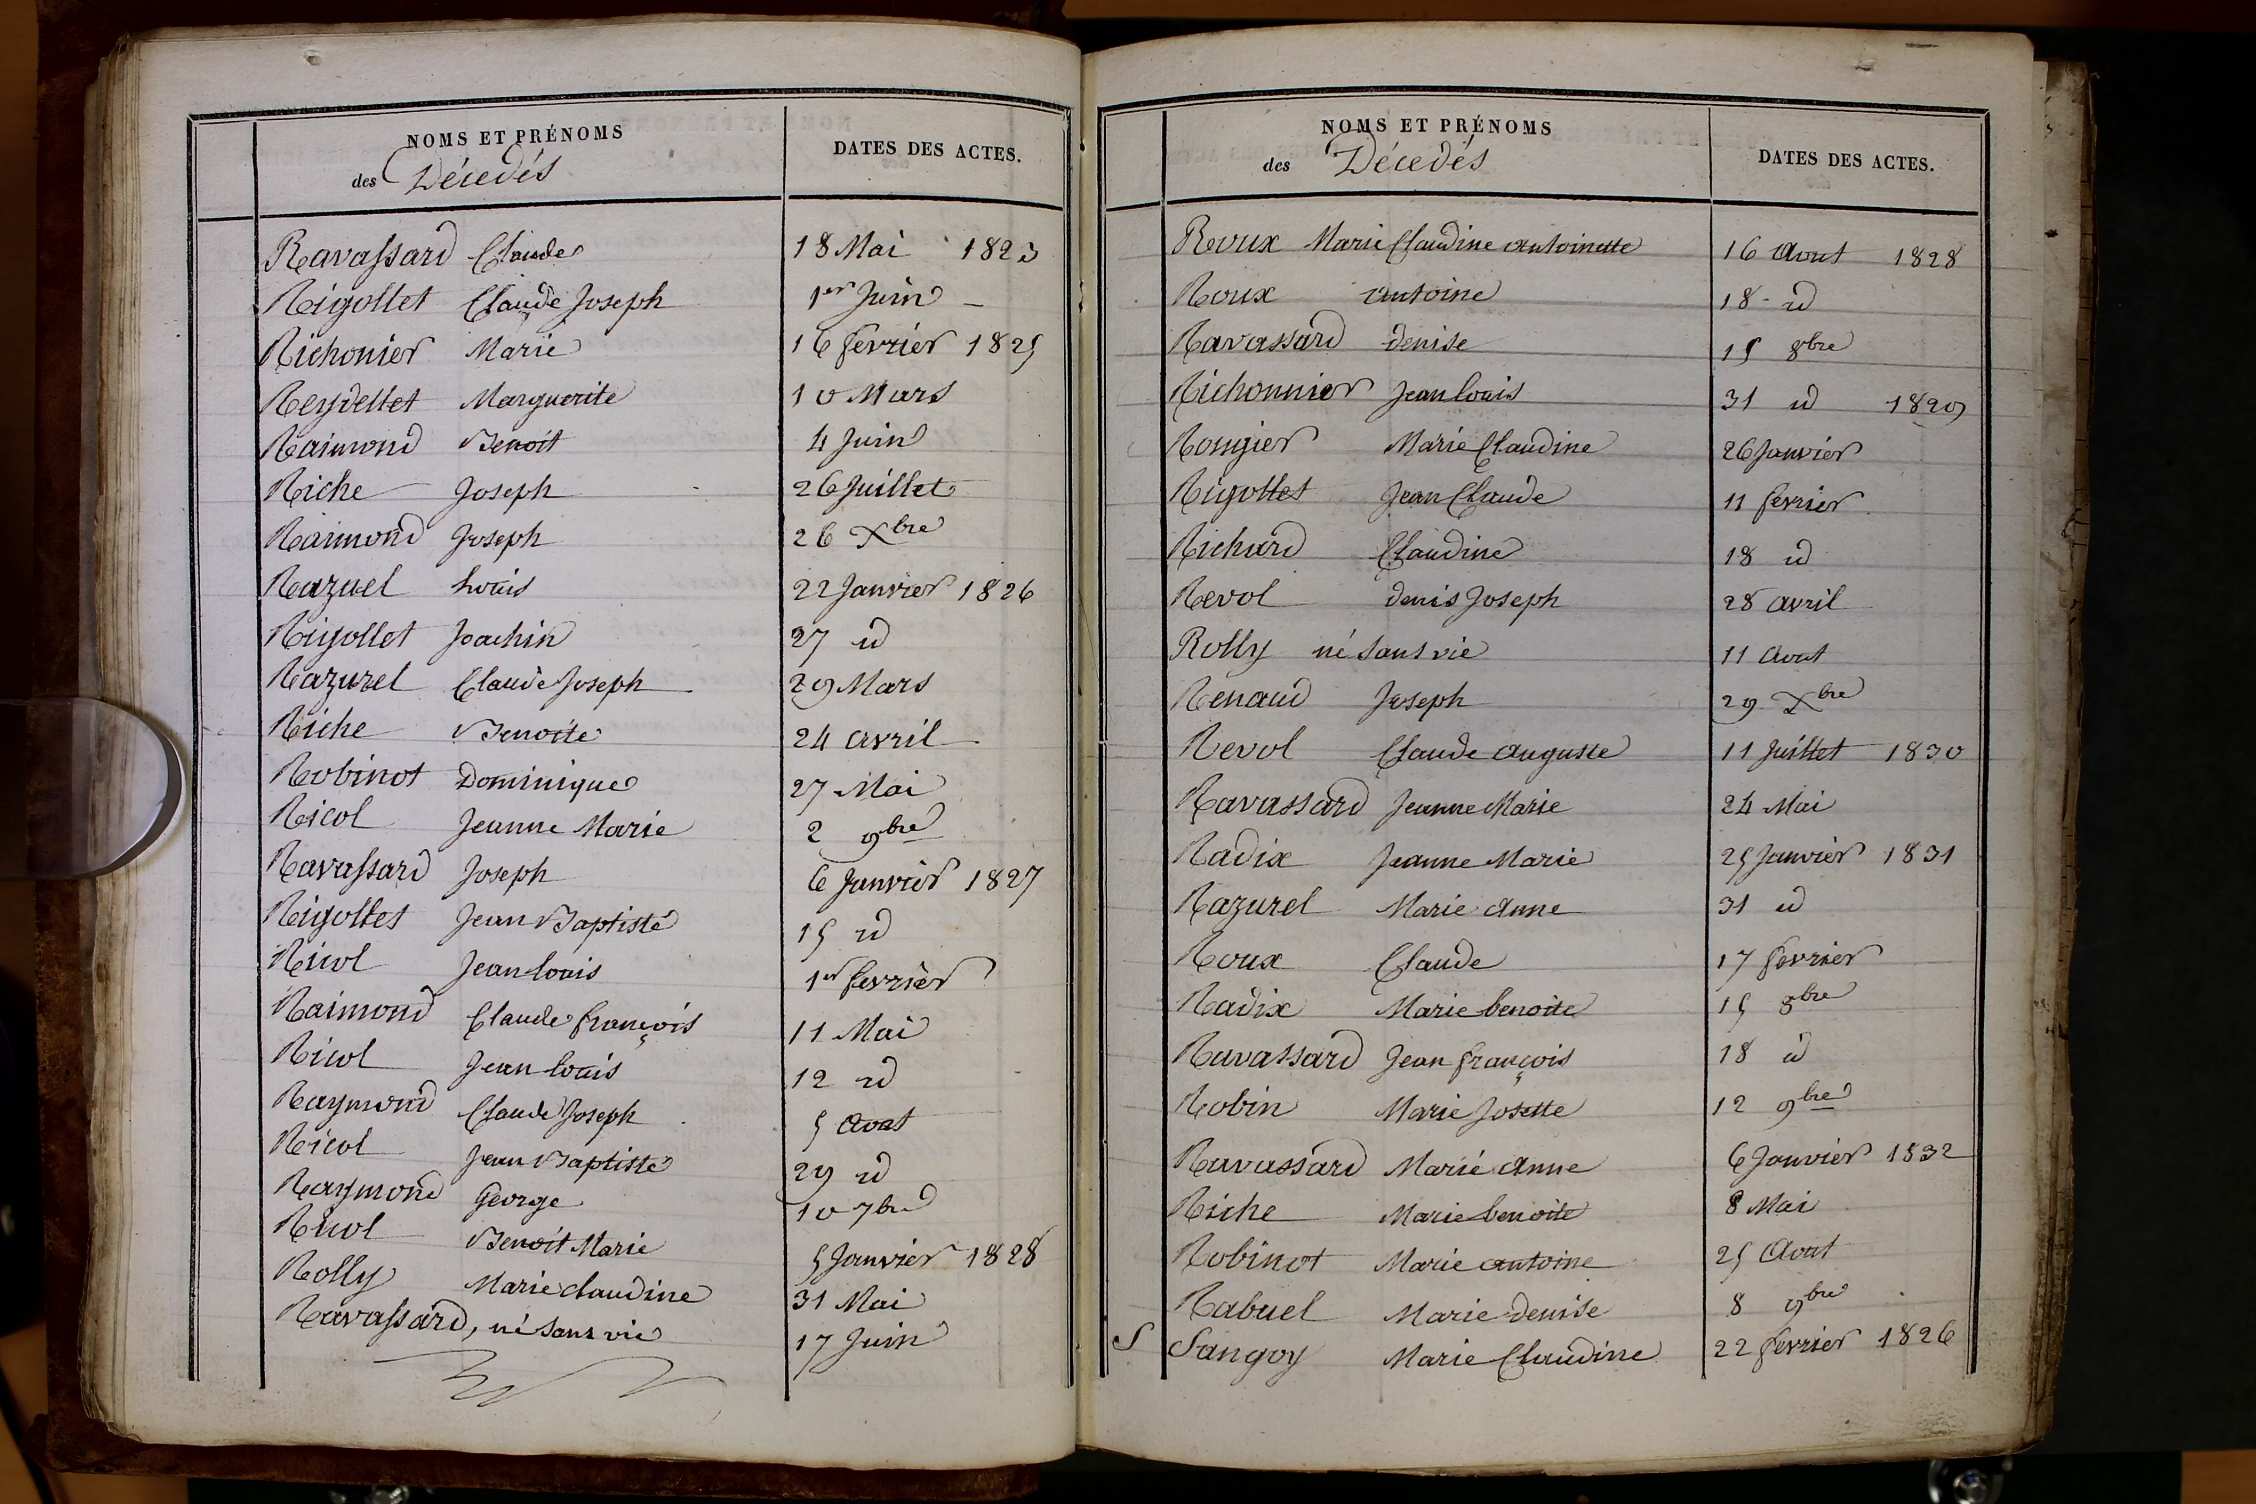 NOMS ET PRÉNOMS
des Décedés
DATES DES ACTES.
Ravassard Claude 18 Mai 1823
Rigollet Claude Joseph 1er Juin –
Richonier Marie 16 fevrier 1825
Reydellet Marguerite 10 Mars
Raimond Benoit 4 Juin
Riche Joseph 26 Juillet
Raimond Joseph 26 Xbre
Razuel Louis 22 Janvier 1826
Rigollet Joachin 27 id
Razurel Claude Joseph 29 Mars
Riche Benoite 24 avril
Robinot Dominique 27 Mai
Ricol Jeanne Marie 2 9bre
Ravassard Joseph 6 Janvier 1827
Rigollet Jean Baptiste 15 id
Ricol Jean louis 1er fevrier
Raimond Claude françois 11 Mai
Ricol Jean louis 12 id
Raymond Claude Joseph 5 Aout
Ricol Jean Baptiste 29 id
Raymond George 10 7bre
Ricol Benoit Marie 5 Janvier 1828
Rolly Marie claudine 31 Mai
Ravassard, né sans vie 17 Juin
NOMS ET PRÉNOMS
des Décedés
DATES DES ACTES.
Roux Marie Claudine antoinette 16 Aout 1828
Roux antoine 18 id
Ravassard denise 15 8bre
Richonnier Jean louis 31 id 1829
Rougier Marie Claudine 26 Janvier
Rigollet Jean Claude 11 fevrier
Richard Claudine 18 id
Revol denis Joseph 28 avril
Rolly né sans vie 11 Aout
Renaud Joseph 29 Xbre
Revol Claude auguste 11 Juillet 1830
Ravassard Jeanne Marie 24 Mai
Radix Jeanne Marie 25 Janvier 1831
Razurel Marie Anne 31 id
Roux Claude 17 fevrier
Radix Marie benoite 15 8bre
Ravassard Jean françois 18 id
Robin Marie Josette 12 9bre
Ravassard Marie Anne 6 Janvier 1832
Riche Marie benoite 8 Mai
Robinot Marie antoine 25 Aout
Rabuel Marie denise 8 9bre
S Sangoy Marie Claudine 22 fevrier 1826